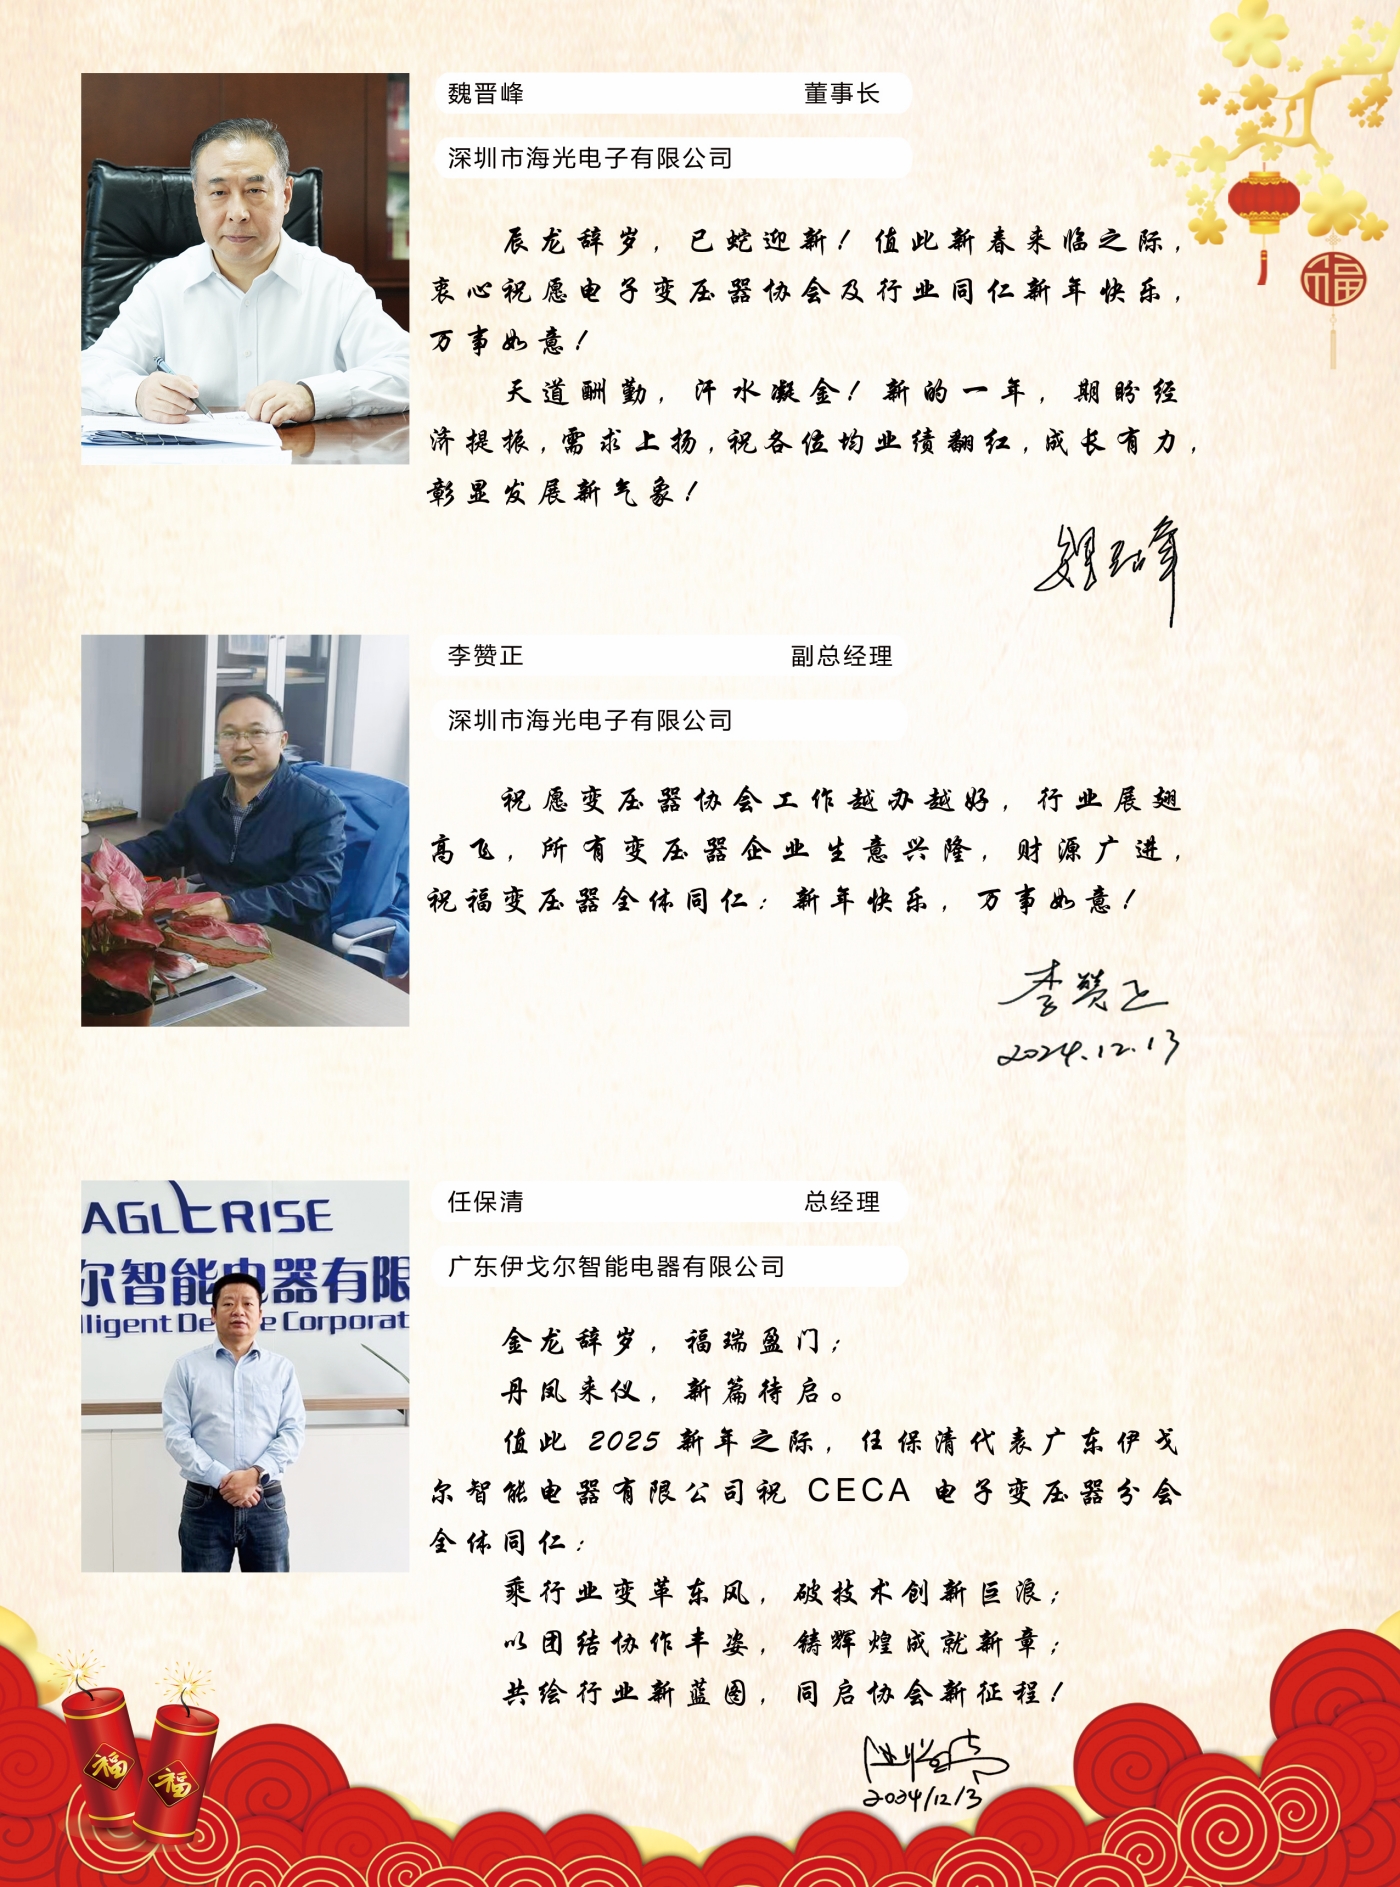 魏晋峰 董事长
深圳市海光电子有限公司
辰龙辞岁，巳蛇迎新！值此新春来临之际，
衷心祝愿电子变压器协会及行业同仁新年快乐，
万事如意！
天道酬勤，汗水凝金！新的一年，期盼经
济提振，需求上扬，祝各位均业绩翻红，成长有力，
彰显发展新气象！
魏晋峰
福
李赞正 副总经理
深圳市海光电子有限公司
祝愿变压器协会工作越办越好，行业展翅
高飞，所有变压器企业生意兴隆，财源广进，
祝福变压器全体同仁：新年快乐，万事如意！
李赞正
2024.12.13
AGLERISE
尔智能电器有限
lligent De e Corporat
任保清 总经理
广东伊戈尔智能电器有限公司
金龙辞岁，福瑞盈门；
丹凤来仪，新篇待启。
值此 2025 新年之际，任保清代表广东伊戈
尔智能电器有限公司祝 CECA 电子变压器分会
全体同仁：
乘行业变革东风，破技术创新巨浪；
以团结协作丰姿，铸辉煌成就新章；
共绘行业新蓝图，同启协会新征程！
2024/12/3
福
福